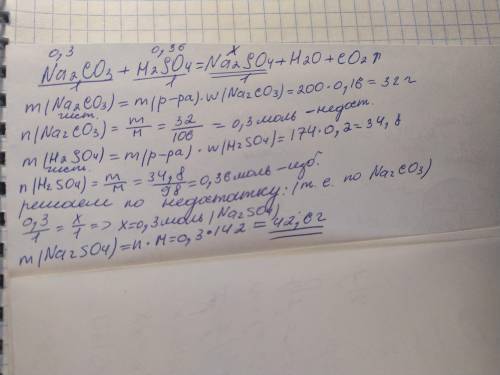 0,3 0,36 x
Na2CO3 + H2SO4 = Na2SO4 + H2O + CO2↑
1 1 1
m(Na2CO3) = m(р-ра)·w(Na2CO3) = 200·0,16 = 32 г
чист.
n(Na2CO3) = m/M = 32/106 = 0,3 моль - недост.
m(H2SO4) = m(р-ра)·w(H2SO4) = 174·0,2 = 34,8
чист.
n(H2SO4) = m/M = 34,8/98 = 0,36 моль - изб.
решаем по недостатку: (т.е. по Na2CO3)
0,3/1 = x/1 => x = 0,3 моль (Na2SO4)
m(Na2SO4) = n·M = 0,3·142 = 42,6 г